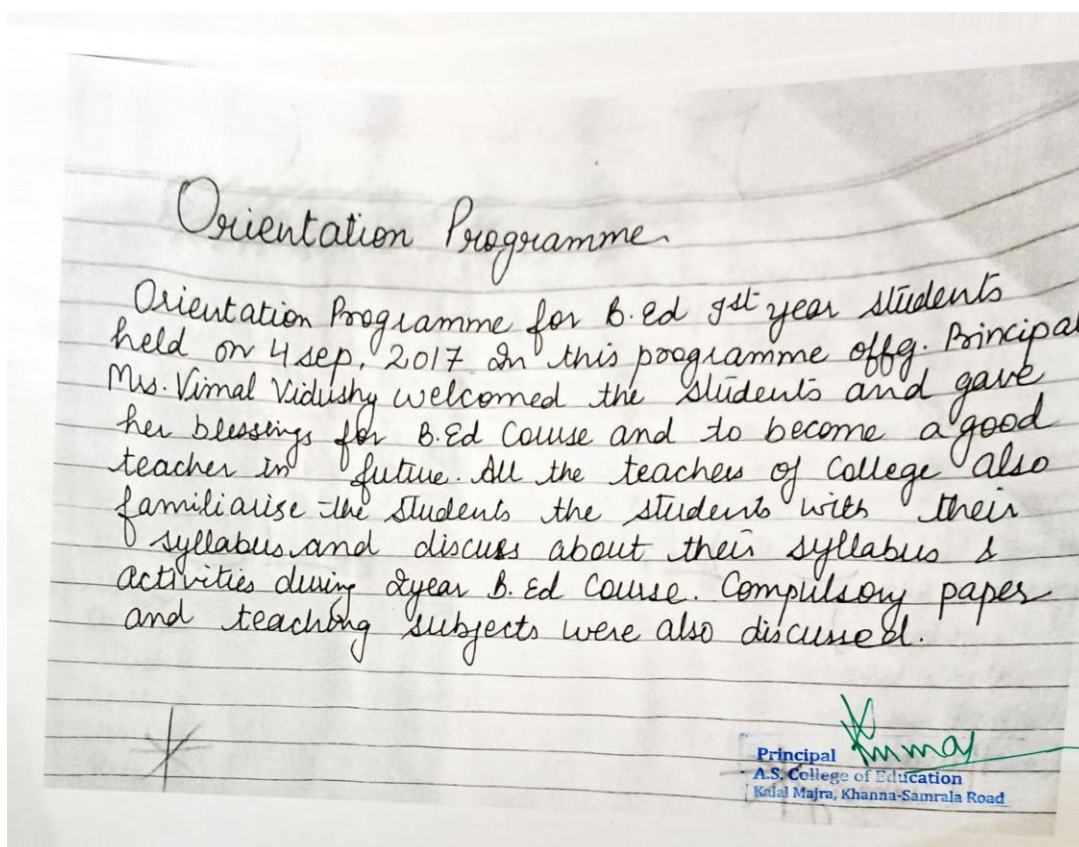 Orientation Programme
Orientation Programme for B.Ed Ist year students
held on 4 sep, 2017 In this programme offg. Principal
Mrs. Vimal Vidushy welcomed the students and gave
her blessings for B.Ed Course and to become a good
teacher in future. All the teachers of College also
familiarise the students the students with their
syllabus and discuss about their syllabus &
activities during 2year B.Ed Course. Compulsory paper
and teaching subjects were also discussed.
Principal
A.S. College of Education
Kalal Majra, Khanna-Samrala Road